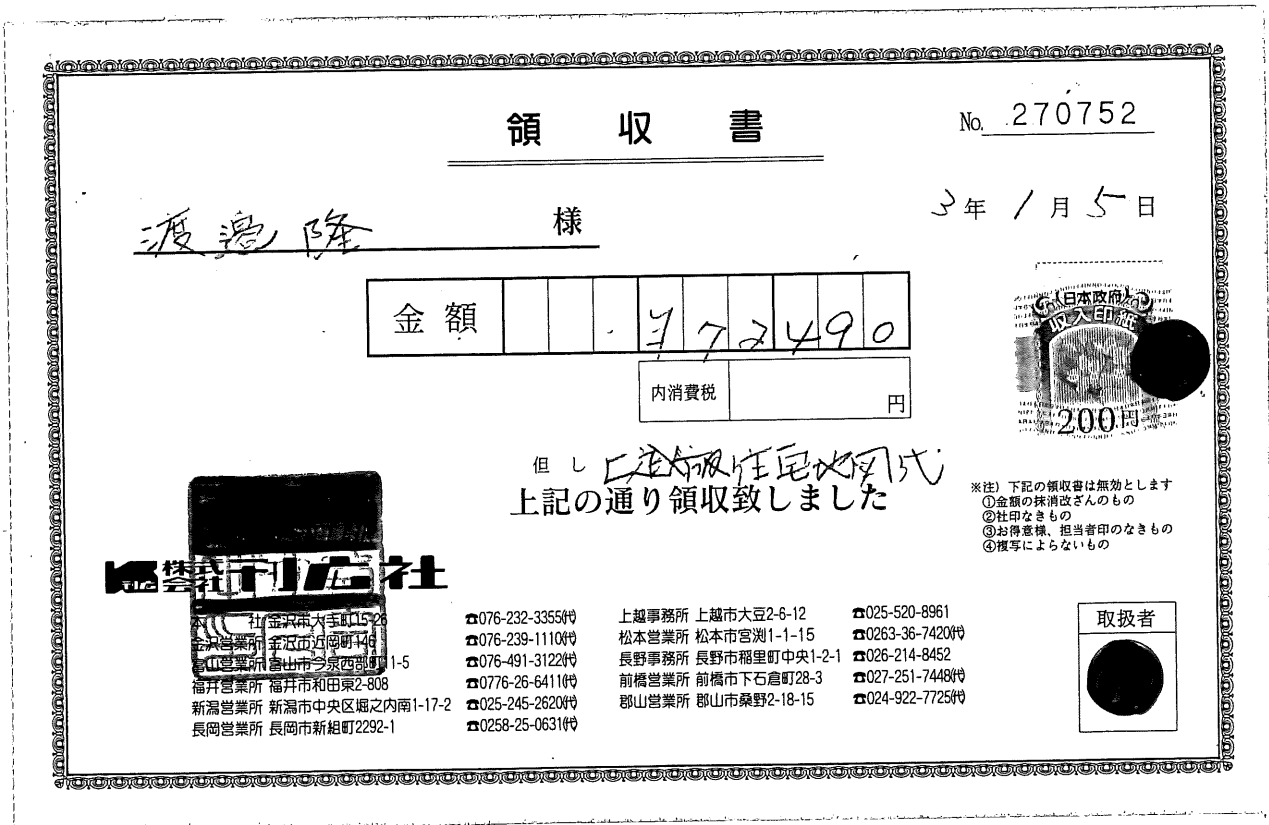 領収書
No. 270752
3年1月5日
渡邉隆 様
金額 ¥72490
内消費税 円
日本政府
収入印紙
200円
但し 上越市住宅地図代
上記の通り領収致しました
※注)下記の領収書は無効とします
①金額の抹消改ざんのもの
②社印なきもの
③お得意様、担当者印のなきもの
④複写によらないもの
株式会社 刊広社
本 社 金沢市大手町15-26 ☎076-232-3355㈹
金沢営業所 金沢市近岡町146 ☎076-239-1110㈹
富山営業所 富山市今泉西部町11-5 ☎076-491-3122㈹
福井営業所 福井市和田東2-808 ☎0776-26-6411㈹
新潟営業所 新潟市中央区堀之内南1-17-2 ☎025-245-2620㈹
長岡営業所 長岡市新組町2292-1 ☎0258-25-0631㈹
上越事務所 上越市大豆2-6-12 ☎025-520-8961
松本営業所 松本市宮渕1-1-15 ☎0263-36-7420㈹
長野事務所 長野市稲里町中央1-2-1 ☎026-214-8452
前橋営業所 前橋市下石倉町28-3 ☎027-251-7448㈹
郡山営業所 郡山市桑野2-18-15 ☎024-922-7725㈹
取扱者